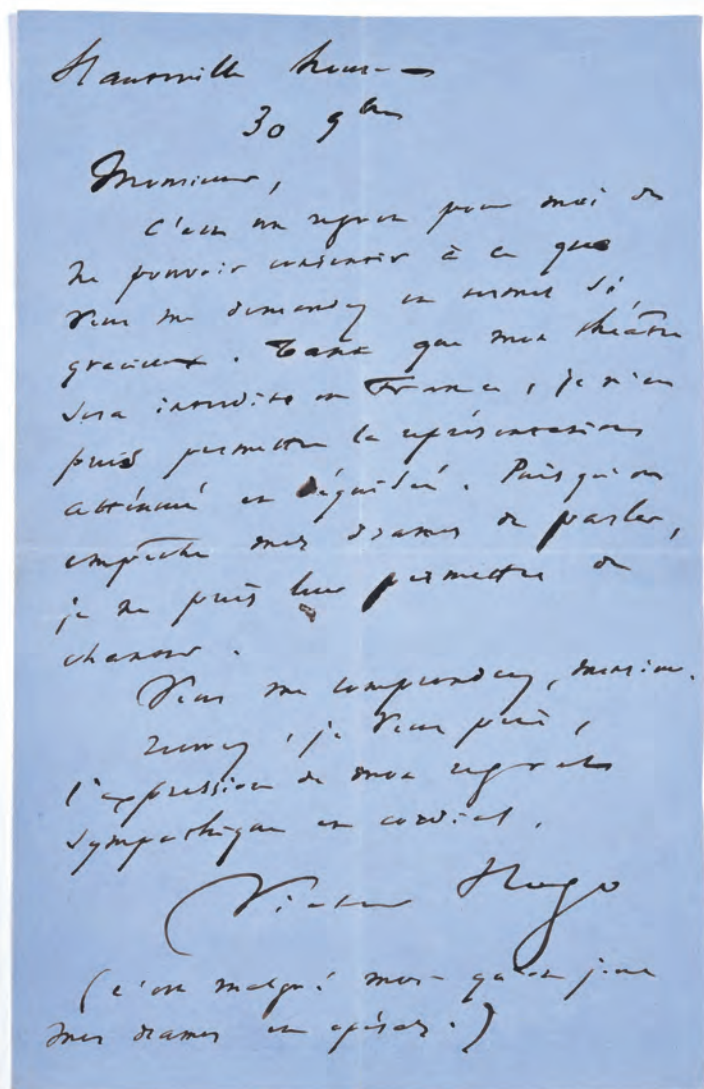 Hauteville house
30 9bre
Monsieur,
C'est un regret pour moi de
ne pouvoir consentir à ce que
vous me demandez en termes si
gracieux. Tant que mon théâtre
sera interdit en France, je n'en
puis permettre la représentation
atténuée et déguisée. Puisqu'on
empêche mes drames de parler,
je ne puis leur permettre de
chanter.
Vous me comprendrez, monsieur.
Recevez, je vous prie,
l'expression de mon regret
sympathique et cordial.
Victor Hugo
(c'est malgré moi qu'on joue
mes drames en opéras.)